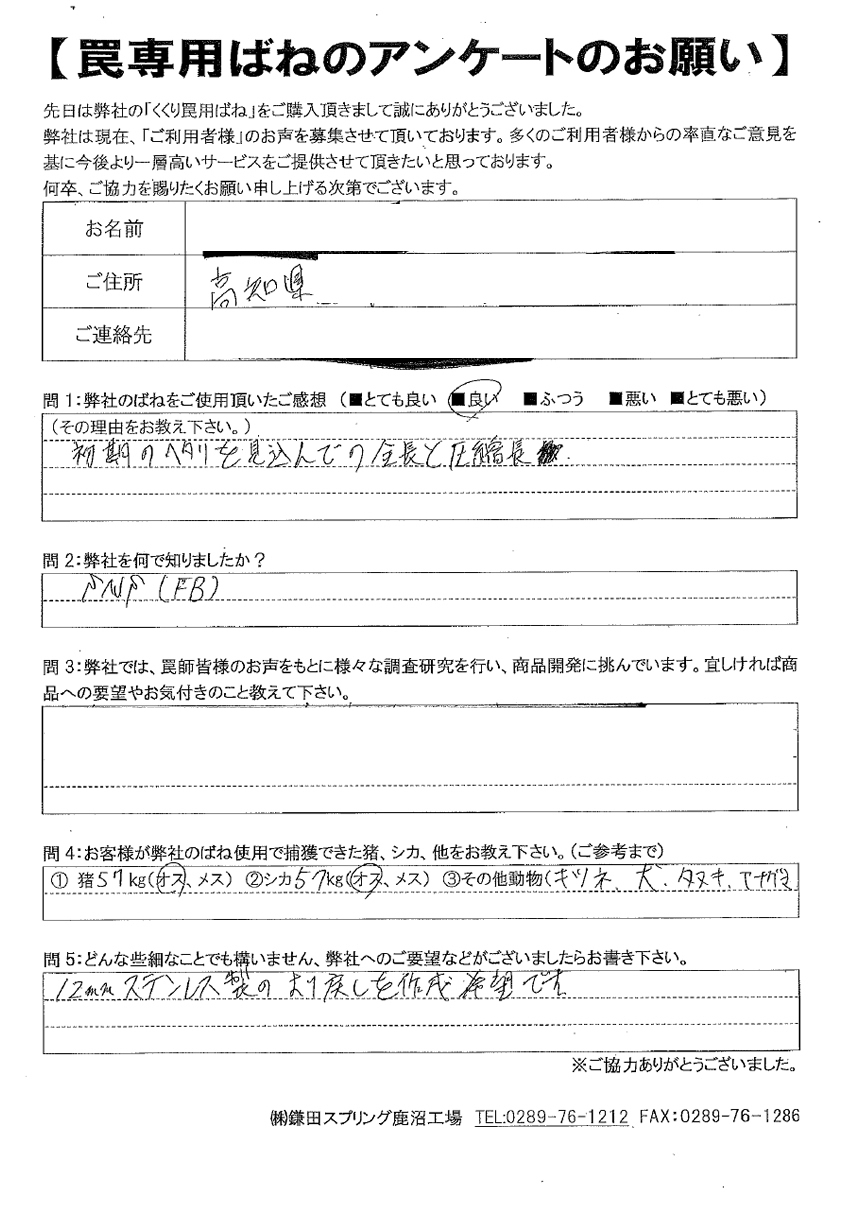 【罠専用ばねのアンケートのお願い】
先日は弊社の「くくり罠用ばね」をご購入頂きまして誠にありがとうございました。
弊社は現在、「ご利用者様」のお声を募集させて頂いております。多くのご利用者様からの率直なご意見を
基に今後より一層高いサービスをご提供させて頂きたいと思っております。
何卒、ご協力を賜りたくお願い申し上げる次第でございます。
お名前
ご住所 高知県
ご連絡先
問1:弊社のばねをご使用頂いたご感想 (■とても良い ■良い ■ふつう ■悪い ■とても悪い)
(その理由をお教え下さい。)
初期のヘタリを見込んでの全長と圧縮長
問2:弊社を何で知りましたか?
SNS (FB)
問3:弊社では、罠師皆様のお声をもとに様々な調査研究を行い、商品開発に挑んでいます。宜しければ商
品への要望やお気付きのこと教えて下さい。
問4:お客様が弊社のばね使用で捕獲できた猪、シカ、他をお教え下さい。(ご参考まで)
① 猪57kg(オス、メス) ②シカ57kg(オス、メス) ③その他動物(キツネ、犬、タヌキ、アナグマ
問5:どんな些細なことでも構いません、弊社へのご要望などがございましたらお書き下さい。
12mmステンレス製のより戻しを作成希望です
※ご協力ありがとうございました。
㈱鎌田スプリング鹿沼工場 TEL:0289-76-1212 FAX:0289-76-1286